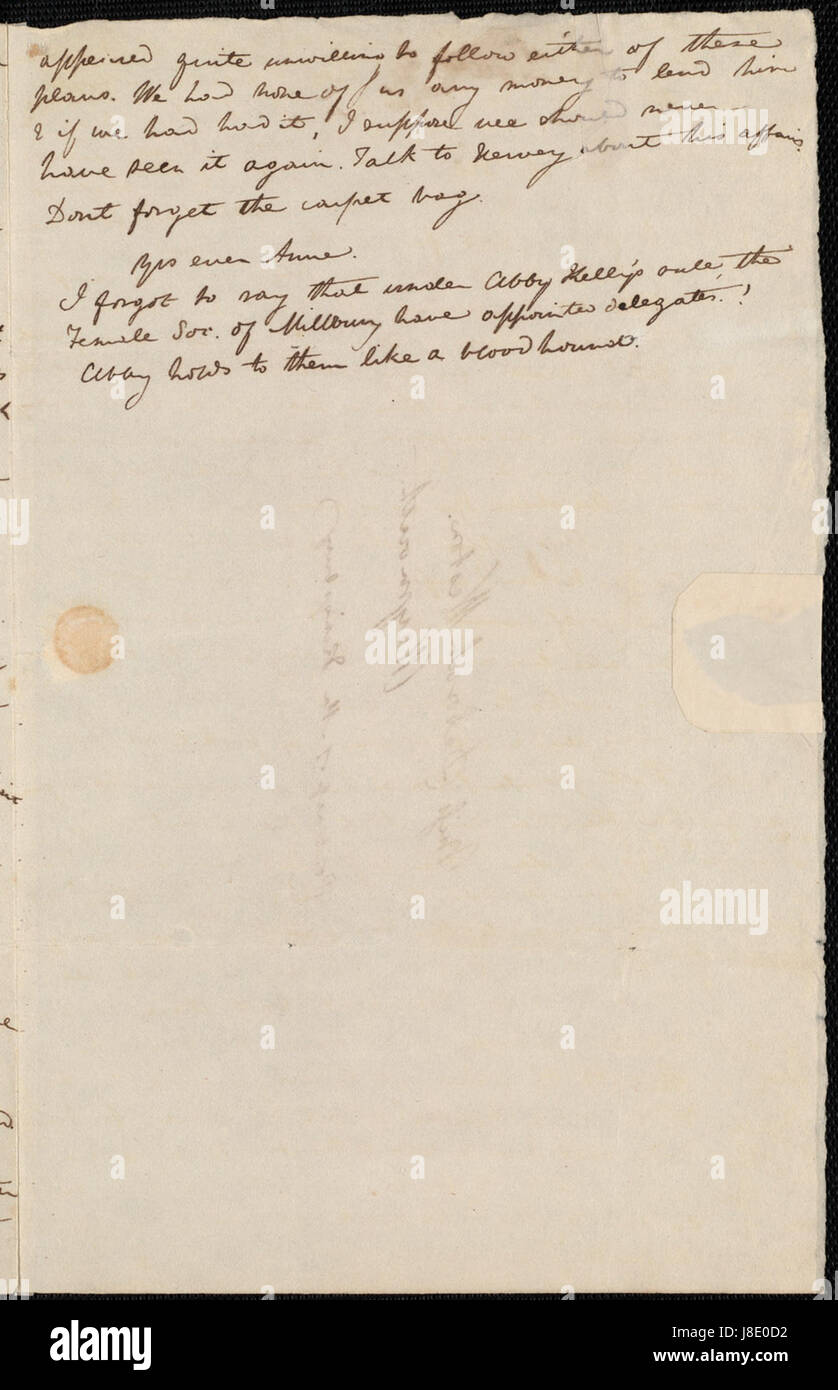 appeared quite unwilling to follow either of these
plans. We had none of us any money to lend him
& if we had had it, I suppose we should never
have seen it again. Talk to Hervey about his affairs.
Dont forget the carpet bag.
Yrs ever Anne.
I forgot to say that under Abby Kelly's rule, the
Female Soc. of Millbury have appointed delegates!
Abby holds to them like a blood hound.
Miss Deborah Weston.
Weymouth
alamy
alamy
Image ID: J8E0D2
www.alamy.com